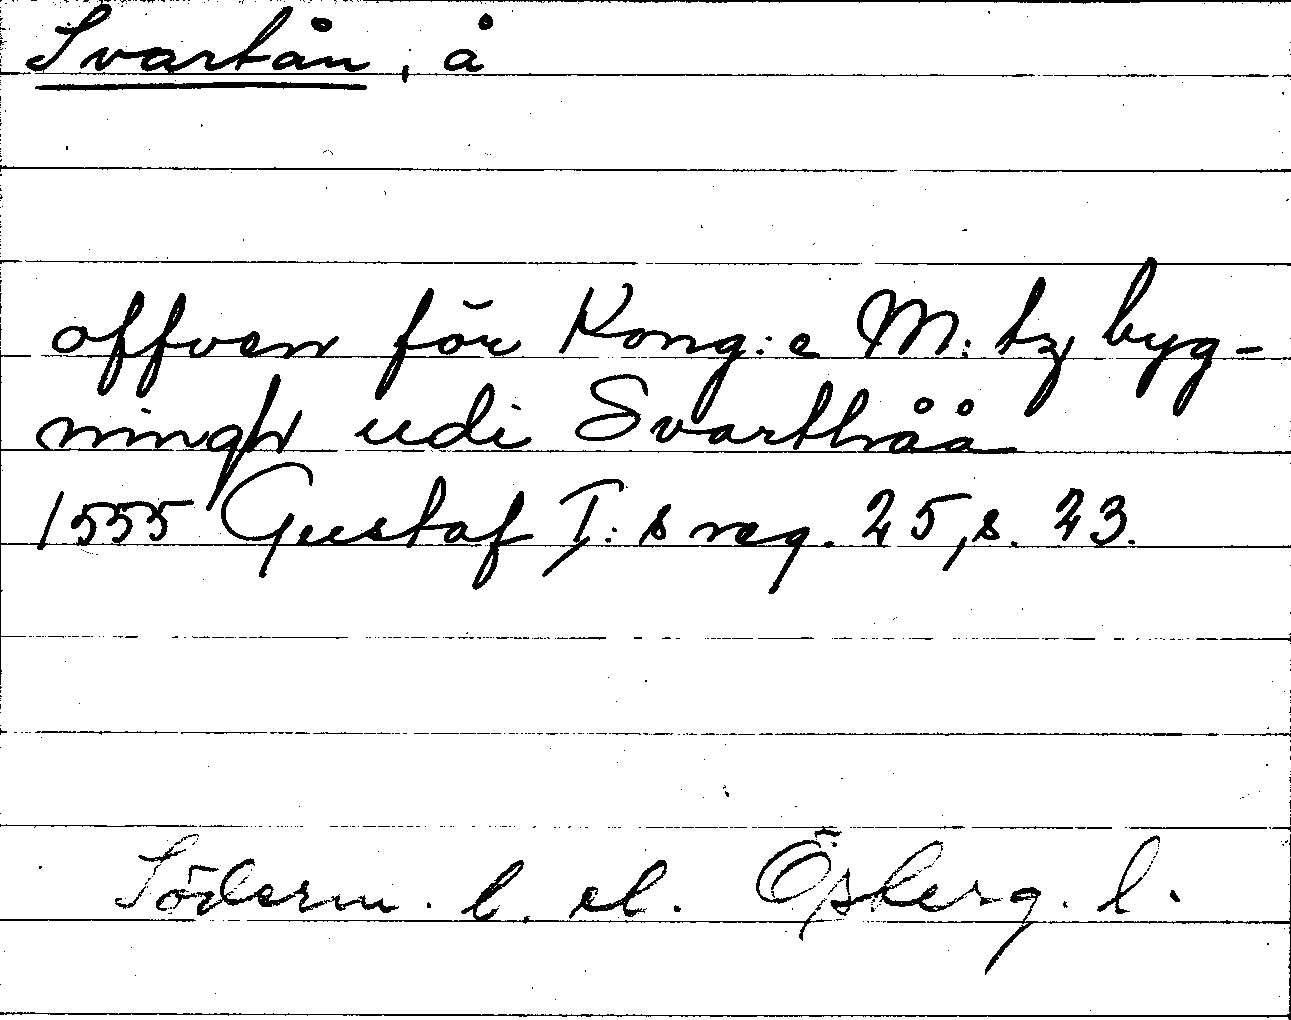 Svartån, å
offven för Kong:e M:tz byg-
ningh udi Svarthåå
1555 Gustaf I:s reg. 25, s. 23.
Söderm. l. el. Östberg. l.